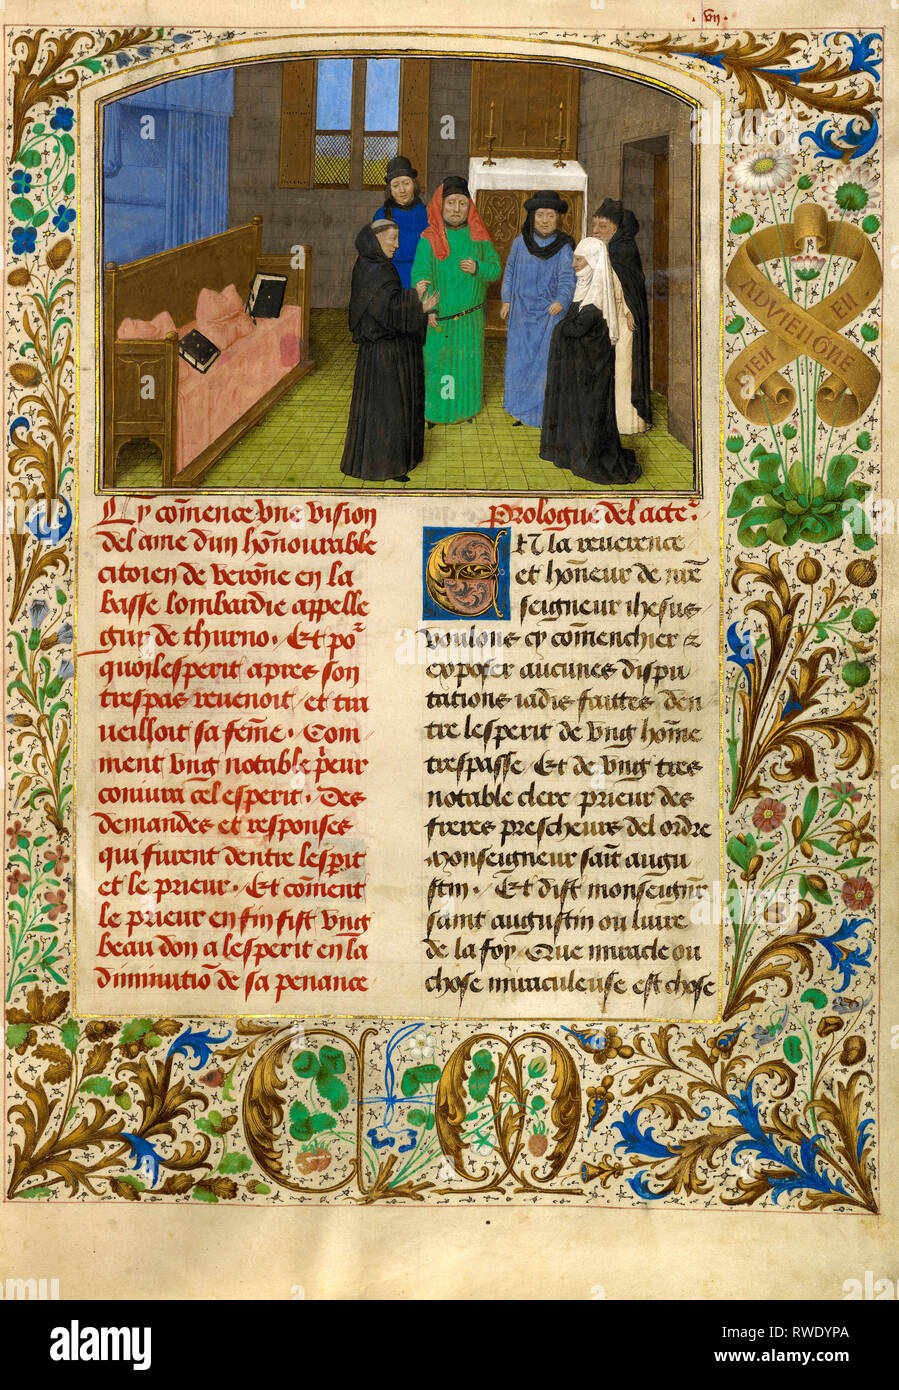 .vij.
ADVIENGNE
BIEN
EN
Cy co͞mence vne vision
del ame dun ho͞nnourable
citoien de vero͞ne en la
basse lombardie appelle
guy de thurno. Et poͬ
quoi lesperit apres son
trespas reuenoit / et tra
ueilloit sa fe͞me. Com-
ment vng notable pͥeur
coniura cel esperit. Des
demandes et responses
qui furent dentre lesp͞it
et le prieur. Et co͞ment
le prieur en fin fist vng
beau don a lesperit en la
diminutio͞ de sa penance
Prologue del acteͬ.
En la reuerence
et ho͞neur de n͞re
seigneur ihesus
voulons cy co͞menchier ⁊
exposer aucunes dispu
tations iadis faittes den
tre lesperit de vng ho͞me
trespasse / Et de vng tres
notable clerc prieur des
freres prescheurs del ordre
monseigneur sai͞t augu
stin. Et dist monseignͬ
saint augustin ou liure
de la foy / Que miracle ou
chose miraculeuse est chose
C M
a alamy
Image ID: RWDYPA
www.alamy.com